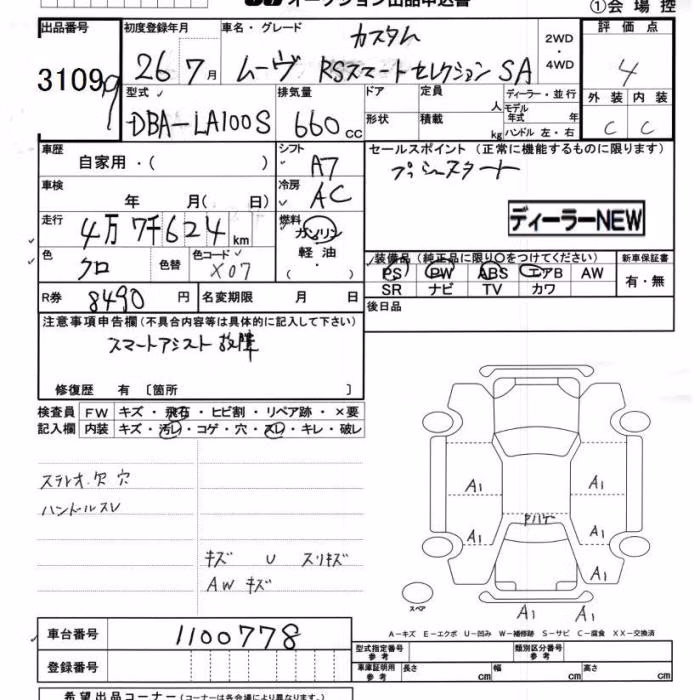 オークション出品申込書
①会場控
出品番号 初度登録年月 車名・グレード カスタム 2WD・4WD 評価点
31099 26年7月 ムーヴ RSスマートセレクションSA 4
型式 排気量 ドア 定員 人 ディーラー・並行 外装 内装
DBA-LA100S 660cc 形状 積載 kg モデル年式 年 ハンドル 左・右 C C
車歴 自家用・( ) シフト A7 セールスポイント (正常に機能するものに限ります)
プッシュスタート
車検 年 月( 日) 冷房 AC
ディーラーNEW
走行 4万7千624km 燃料 ガソリン
軽油
( ・ )
色 クロ 色替 色コード X07 装備品 (純正品に限り○をつけてください) 新車保証書
PS PW ABS エアB AW 有・無
SR ナビ TV カワ
R券 8490円 名変期限 月 日 後日品
注意事項申告欄 (不具合内容等は具体的に記入して下さい)
スマートアシスト故障
修復歴 有 〔箇所 〕
検査員 FW キズ・飛石・ヒビ割・リペア跡・×要
記入欄 内装 キズ・汚レ・コゲ・穴・スレ・キレ・破レ
ステレオ.欠 穴
ハンドルスレ
キズ U スリキズ
AW キズ
A1 A1
A1 A1
A1
A1 A1
スペア
A-キズ E-エクボ U-凹み W-補修跡 S-サビ C-腐食 XX-交換済
車台番号 1100778
型式指定番号 参考 類別区分番号 参考
登録番号
車庫証明用 参考 長さ cm 幅 cm 高さ cm
希望出品コーナー (コーナーは各会場により異なります。)